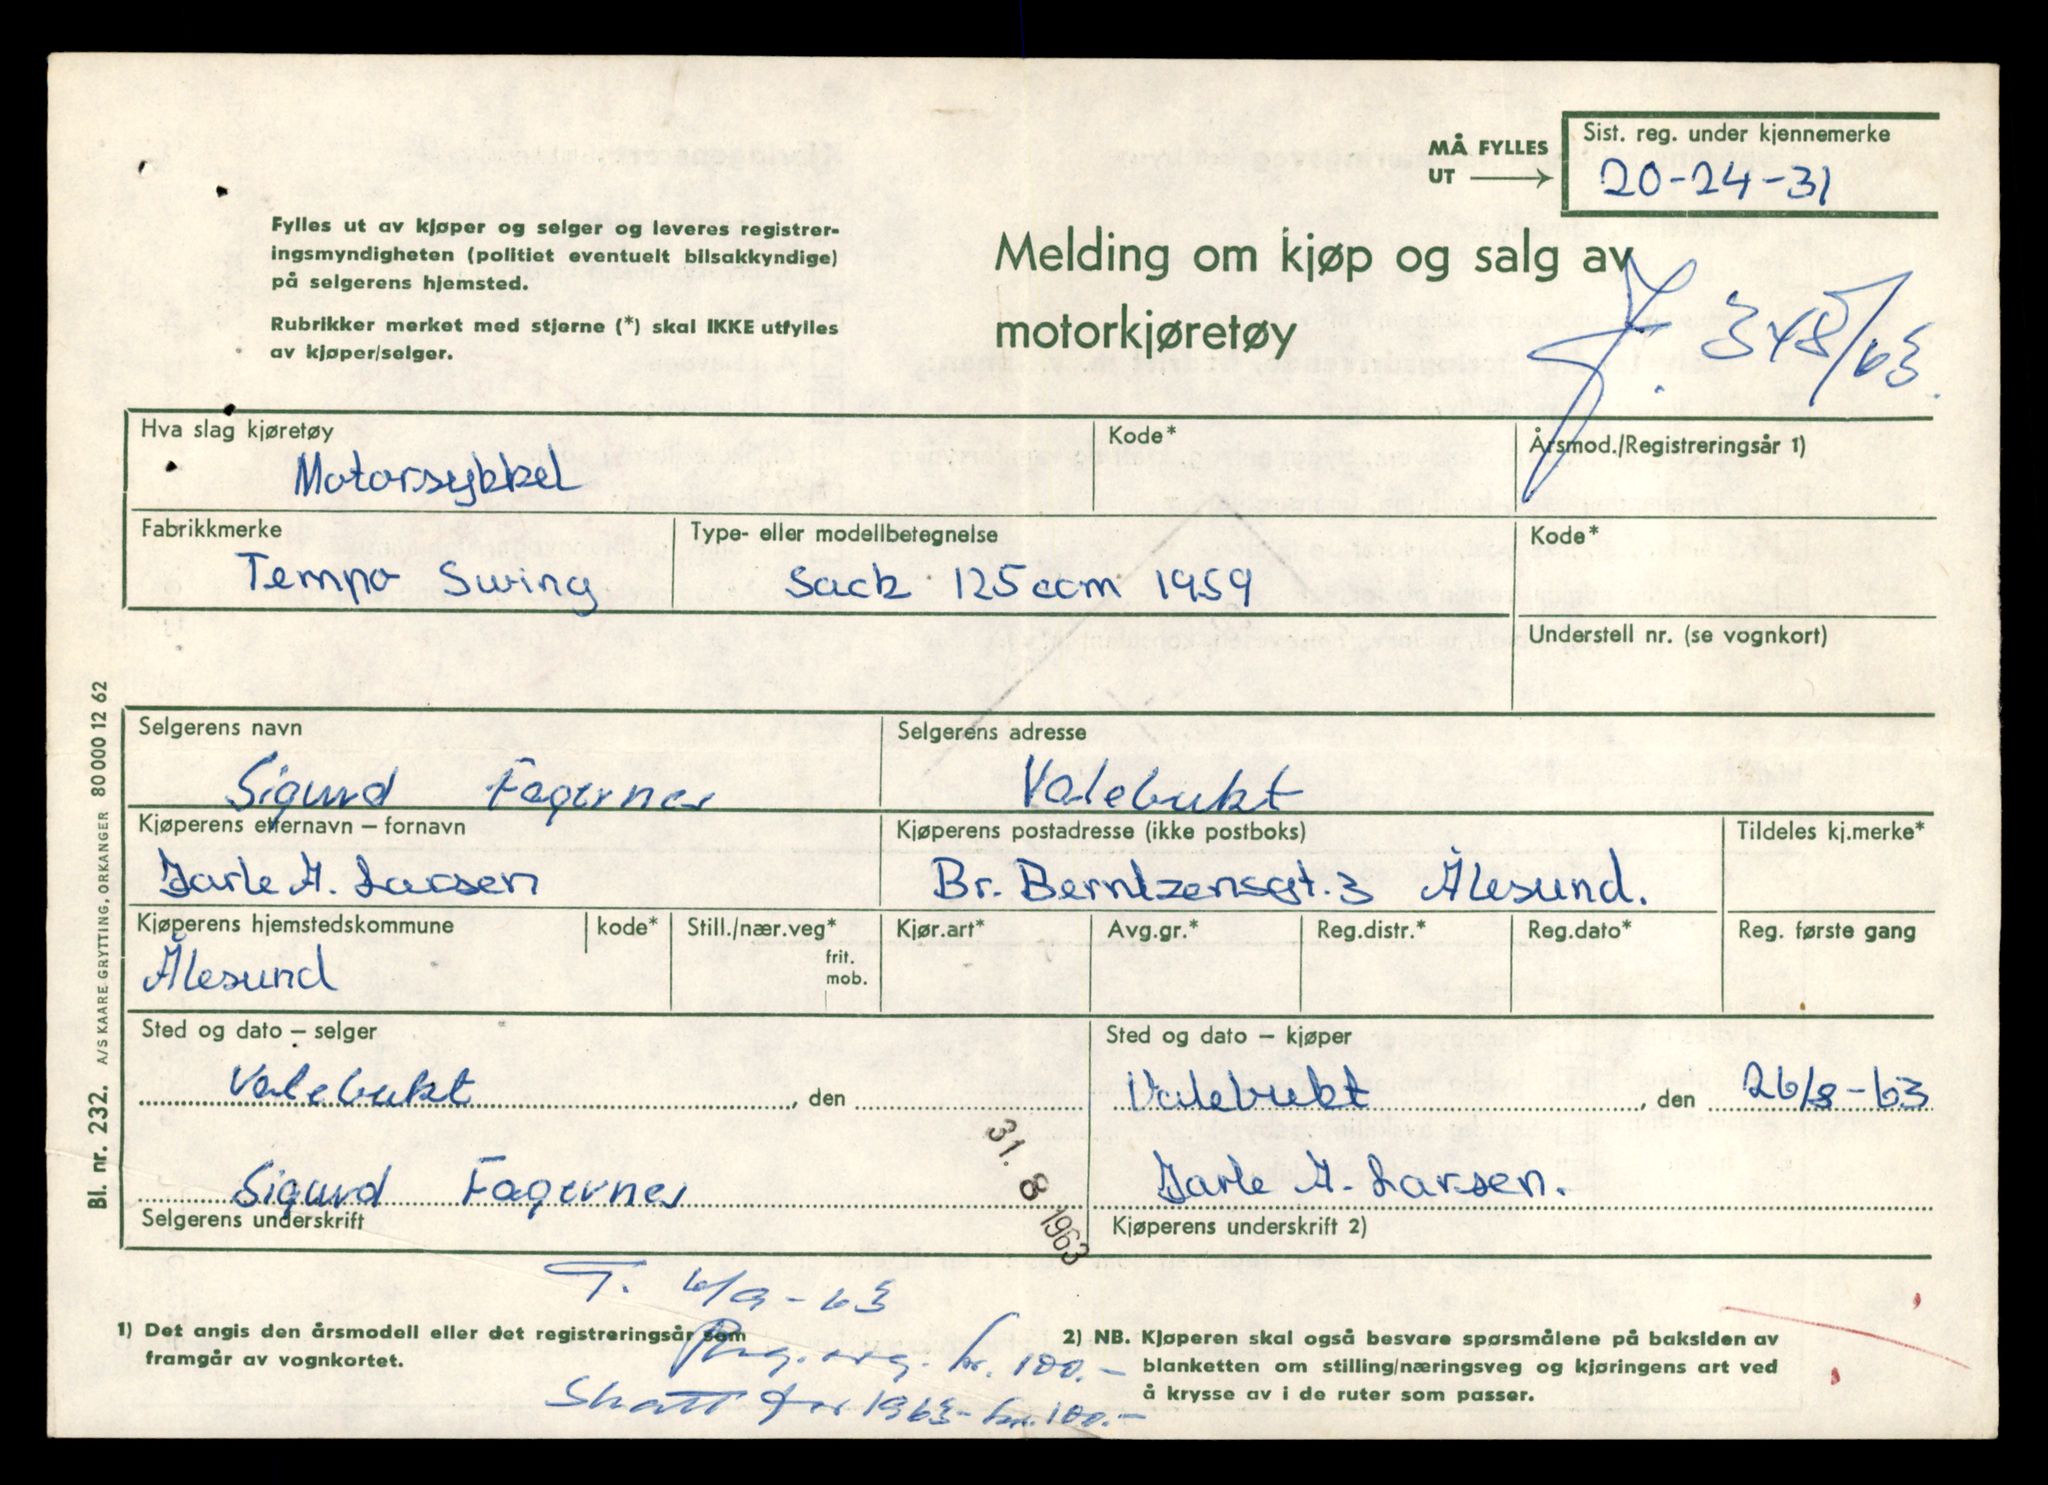 MÅ FYLLES
UT
Sist. reg. under kjennemerke
20-24-31
Fylles ut av kjøper og selger og leveres registrer-
ingsmyndigheten (politiet eventuelt bilsakkyndige)
på selgerens hjemsted.
Rubrikker merket med stjerne (*) skal IKKE utfylles
av kjøper/selger.
Melding om kjøp og salg av
motorkjøretøy
J. 348/63.
Hva slag kjøretøy
Kode*
Årsmod./Registreringsår 1)
Motorsykkel
Fabrikkmerke
Type- eller modellbetegnelse
Kode*
Tempo Swing
Sack 125 ccm 1959
Understell nr. (se vognkort)
Selgerens navn
Selgerens adresse
Sigurd Fagernes
Valebukt
Kjøperens etternavn – fornavn
Kjøperens postadresse (ikke postboks)
Tildeles kj.merke*
Jarle A. Larsen
Br. Berntzensgt. 3 Ålesund.
Kjøperens hjemstedskommune
kode*
Still./nær.veg*
frit.
mob.
Kjør.art*
Avg.gr.*
Reg.distr.*
Reg.dato*
Reg. første gang
Ålesund
Sted og dato – selger
Sted og dato – kjøper
Valebukt , den
Valebukt , den 26/8-63
31. 8 1963
Sigurd Fagernes
Jarle A. Larsen.
Selgerens underskrift
Kjøperens underskrift 2)
T. 6/9-63
1) Det angis den årsmodell eller det registreringsår som
framgår av vognkortet.
2) NB. Kjøperen skal også besvare spørsmålene på baksiden av
blanketten om stilling/næringsveg og kjøringens art ved
å krysse av i de ruter som passer.
kr. 100.-
Skatt for 1963- kr. 100.-
Bl. nr. 232. A/S KAARE GRYTTING, ORKANGER 80 000 12 62